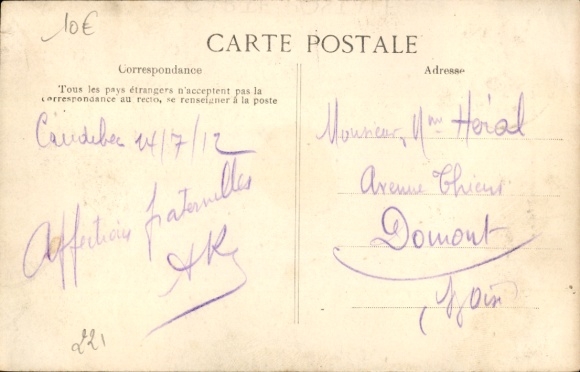 10€
CARTE POSTALE
Correspondance
Tous les pays étrangers n'acceptent pas la
correspondance au recto, se renseigner à la poste
Caudebec 14/7/12
Affections fraternelles
AK
221
Adresse
Monsieur, Mme Héral
Avenue Thiers
Domont